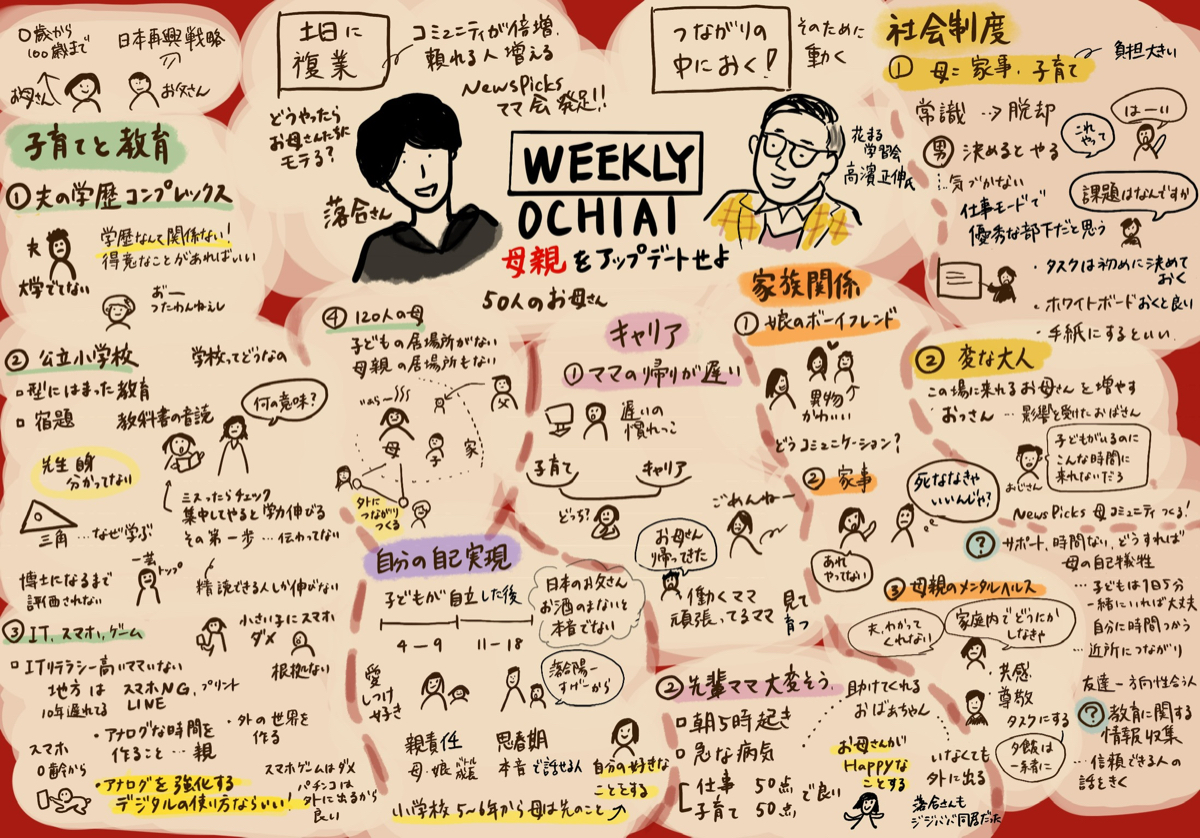 0歳から
100歳まで
日本再興戦略
お母さん
お父さん
土日に
複業
コミュニティが倍増、
頼れる人増える
NewsPicks
ママ会発足!!
どうやったら
お母さんたちに
モテる?
落合さん
WEEKLY
OCHIAI
母親をアップデートせよ
50人のお母さん
つながりの
中におく!
そのために
動く
花まる
学習会
高濱正伸氏
子育てと教育
①夫の学歴コンプレックス
夫
大学でてない
学歴なんて関係ない!
得意なことがあればいい
おー
つたわんねえし
②公立小学校
学校ってどうなの
型にはまった教育
宿題
教科書の音読
何の意味?
先生自身
分かってない
ミスったらチェック
集中してやると学力伸びる
その第一歩…伝わってない
三角…なぜ学ぶ
博士になるまで
評価されない
一芸
トップ
精読できる人しか伸びない
③IT、スマホ、ゲーム
小さい子にスマホ
ダメ
根拠ない
ITリテラシー高いママいない
地方は
10年遅れてる
スマホNG、プリント
LINE
・アナログな時間を
作ること…親
・外の世界を
作る
スマホ
0歳から
・アナログを強化する
デジタルの使い方ならいい!
スマホゲームはダメ
パチンコは
外に出るから
良い
④120人の母
子どもの居場所がない
母親の居場所もない
父
母
子
家
外に
つながり
つくる
自分の自己実現
子どもが自立した後
4-9
11-18
日本のお父さん
お酒のまないと
本音でない
愛
しつけ
好き
落合陽一
すげーから
親責任
母・娘
バトル
成長
思春期
本音で話せる人
自分の好きな
ことをする
小学校5~6年から母は先のこと
キャリア
①ママの帰りが遅い
遅いの
慣れっこ
子育て
キャリア
どっち?
ごめんねー
お母さん
帰ってきた
働くママ
頑張ってるママ
見て
育つ
②先輩ママ大変そう
朝5時起き
急な病気
仕事 50点
子育て 50点
で良い
助けてくれる
おばあちゃん
お母さんが
Happyな
ことする
いなくても
外に出る
落合さんも
ジジババ同居だった
家族関係
①娘のボーイフレンド
異物か
かわいい
どうコミュニケーション?
②家事
死ななきゃ
いいんじゃ?
あれ
やってない
③母親のメンタルヘルス
夫、わかって
くれない
家庭内でどうにか
しなきゃ
・共感
・尊敬
タスクにする
夕飯は
一緒に
社会制度
①母に家事・子育て
負担大きい
常識…→脱却
これ
やって
はーい
男 決めるとやる
…気づかない
仕事モードで
優秀な部下だと思う
課題はなんですか
・タスクは初めに決めて
おく
・ホワイトボードおくと良い
・手紙にするといい
②変な大人
この場に来れるお母さんを増やす
おっさん…影響を受けたおばさん
おじさん
子どもがいるのに
こんな時間に
来れないだろ
NewsPicks 母コミュニティつくる!
?サポート、時間ない、どうすれば
母の自己犠牲
…子どもは1日5分
一緒にいれば大丈夫
…自分に時間つかう
…近所につながり
友達一方向性合う人
?教育に関する
情報収集
…信頼できる人の
話をきく